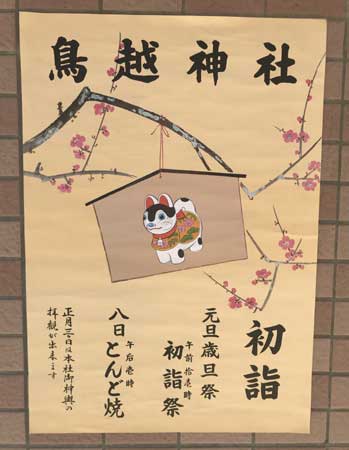 鳥越神社
初詣
元旦歳旦祭
午前拾壱時
初詣祭
午后壱時
八日とんど焼
正月三日は本社御神輿の
拝観が出来ます